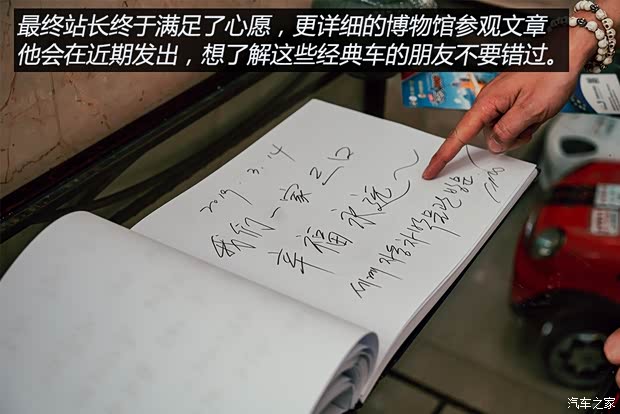 最终站长终于满足了心愿，更详细的博物馆参观文章
他会在近期发出，想了解这些经典车的朋友不要错过。
2019.3.14
我们一家三口
幸福永远～
汽车之家